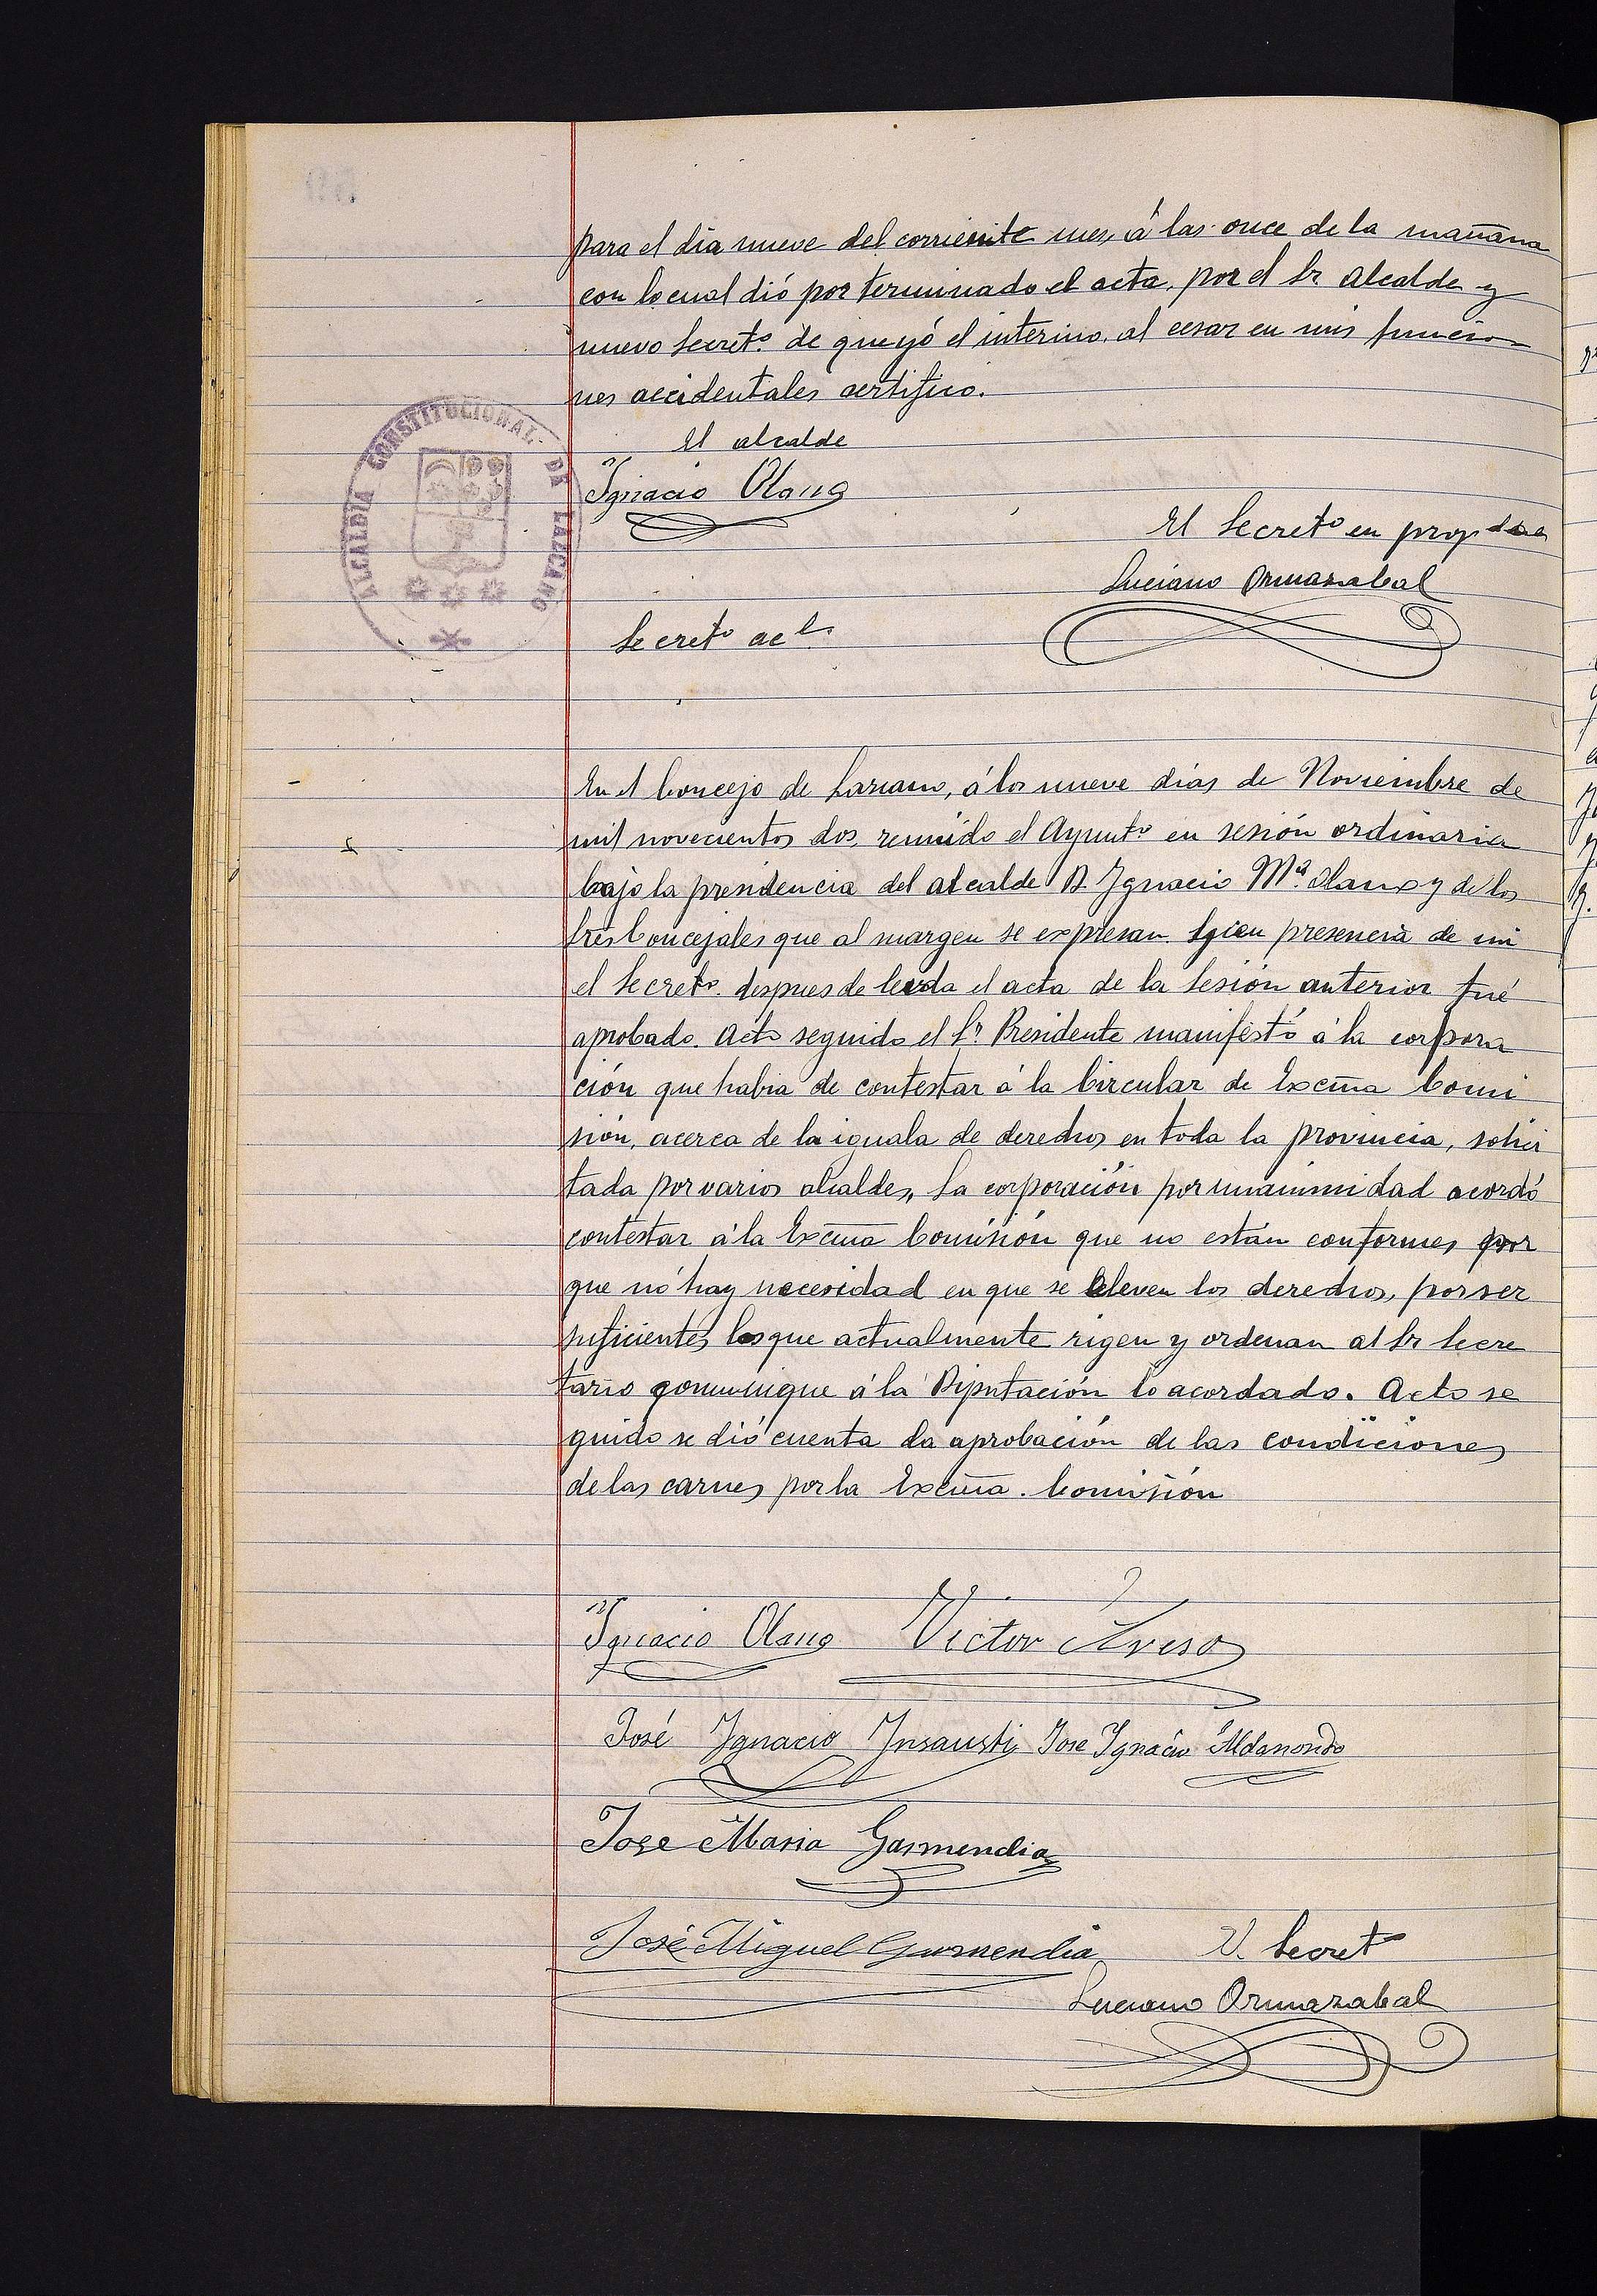 para el dia nueve del corriente mes, á las once de la mañana
con lo cual dió por terminado el acta, por el Sr. Alcalde y
nuevo Secretº de que yó el interino, al cesar en mis funcio
nes accidentales certifico.
El alcalde
Ignacio Olano
ALCALDIA CONSTITUCIONAL DE LAZCANO
El Secretº en prop
Luciano Ormazabal
Secretº acl.
En el Concejo de Lazcano, á los nueve días de Noviembre de
mil novecientos dos, reunido el Ayuntº en sesión ordinaria
bajo la presidencia del alcalde D. Ignacio Mª Olano y de los
Sres Concejales que al margen se expresan presencia de mi
el Secretº. despues de leida el acta de la sesión anterior fué
aprobado. Acto seguido el Sr. Presidente manifestó á la corpora
ción que habia de contestar á la Circular de Excma Comi
sión, acerca de la iguala de derechos en toda la provincia, solici
tada por varios alcaldes, La corporación por unanimidad acordó
contestar á la Excma Comisión que no están conformes por
que nó hay necesidad en que se eleven los derechos, por ser
suficientes los que actualmente rigen y ordenan al Sr Secre
tario comunique á la Diputación lo acordado. Acto se
guido se dió cuenta da aprobación de las condiciones
de las carnes por la Excma. Comisión
Ignacio Olano Victor
José Ignacio Insausti Jose Ignacio Aldanondo
Jose Maria Garmendia
José Miguel Garmendia El Secret
Luciano Ormazabal